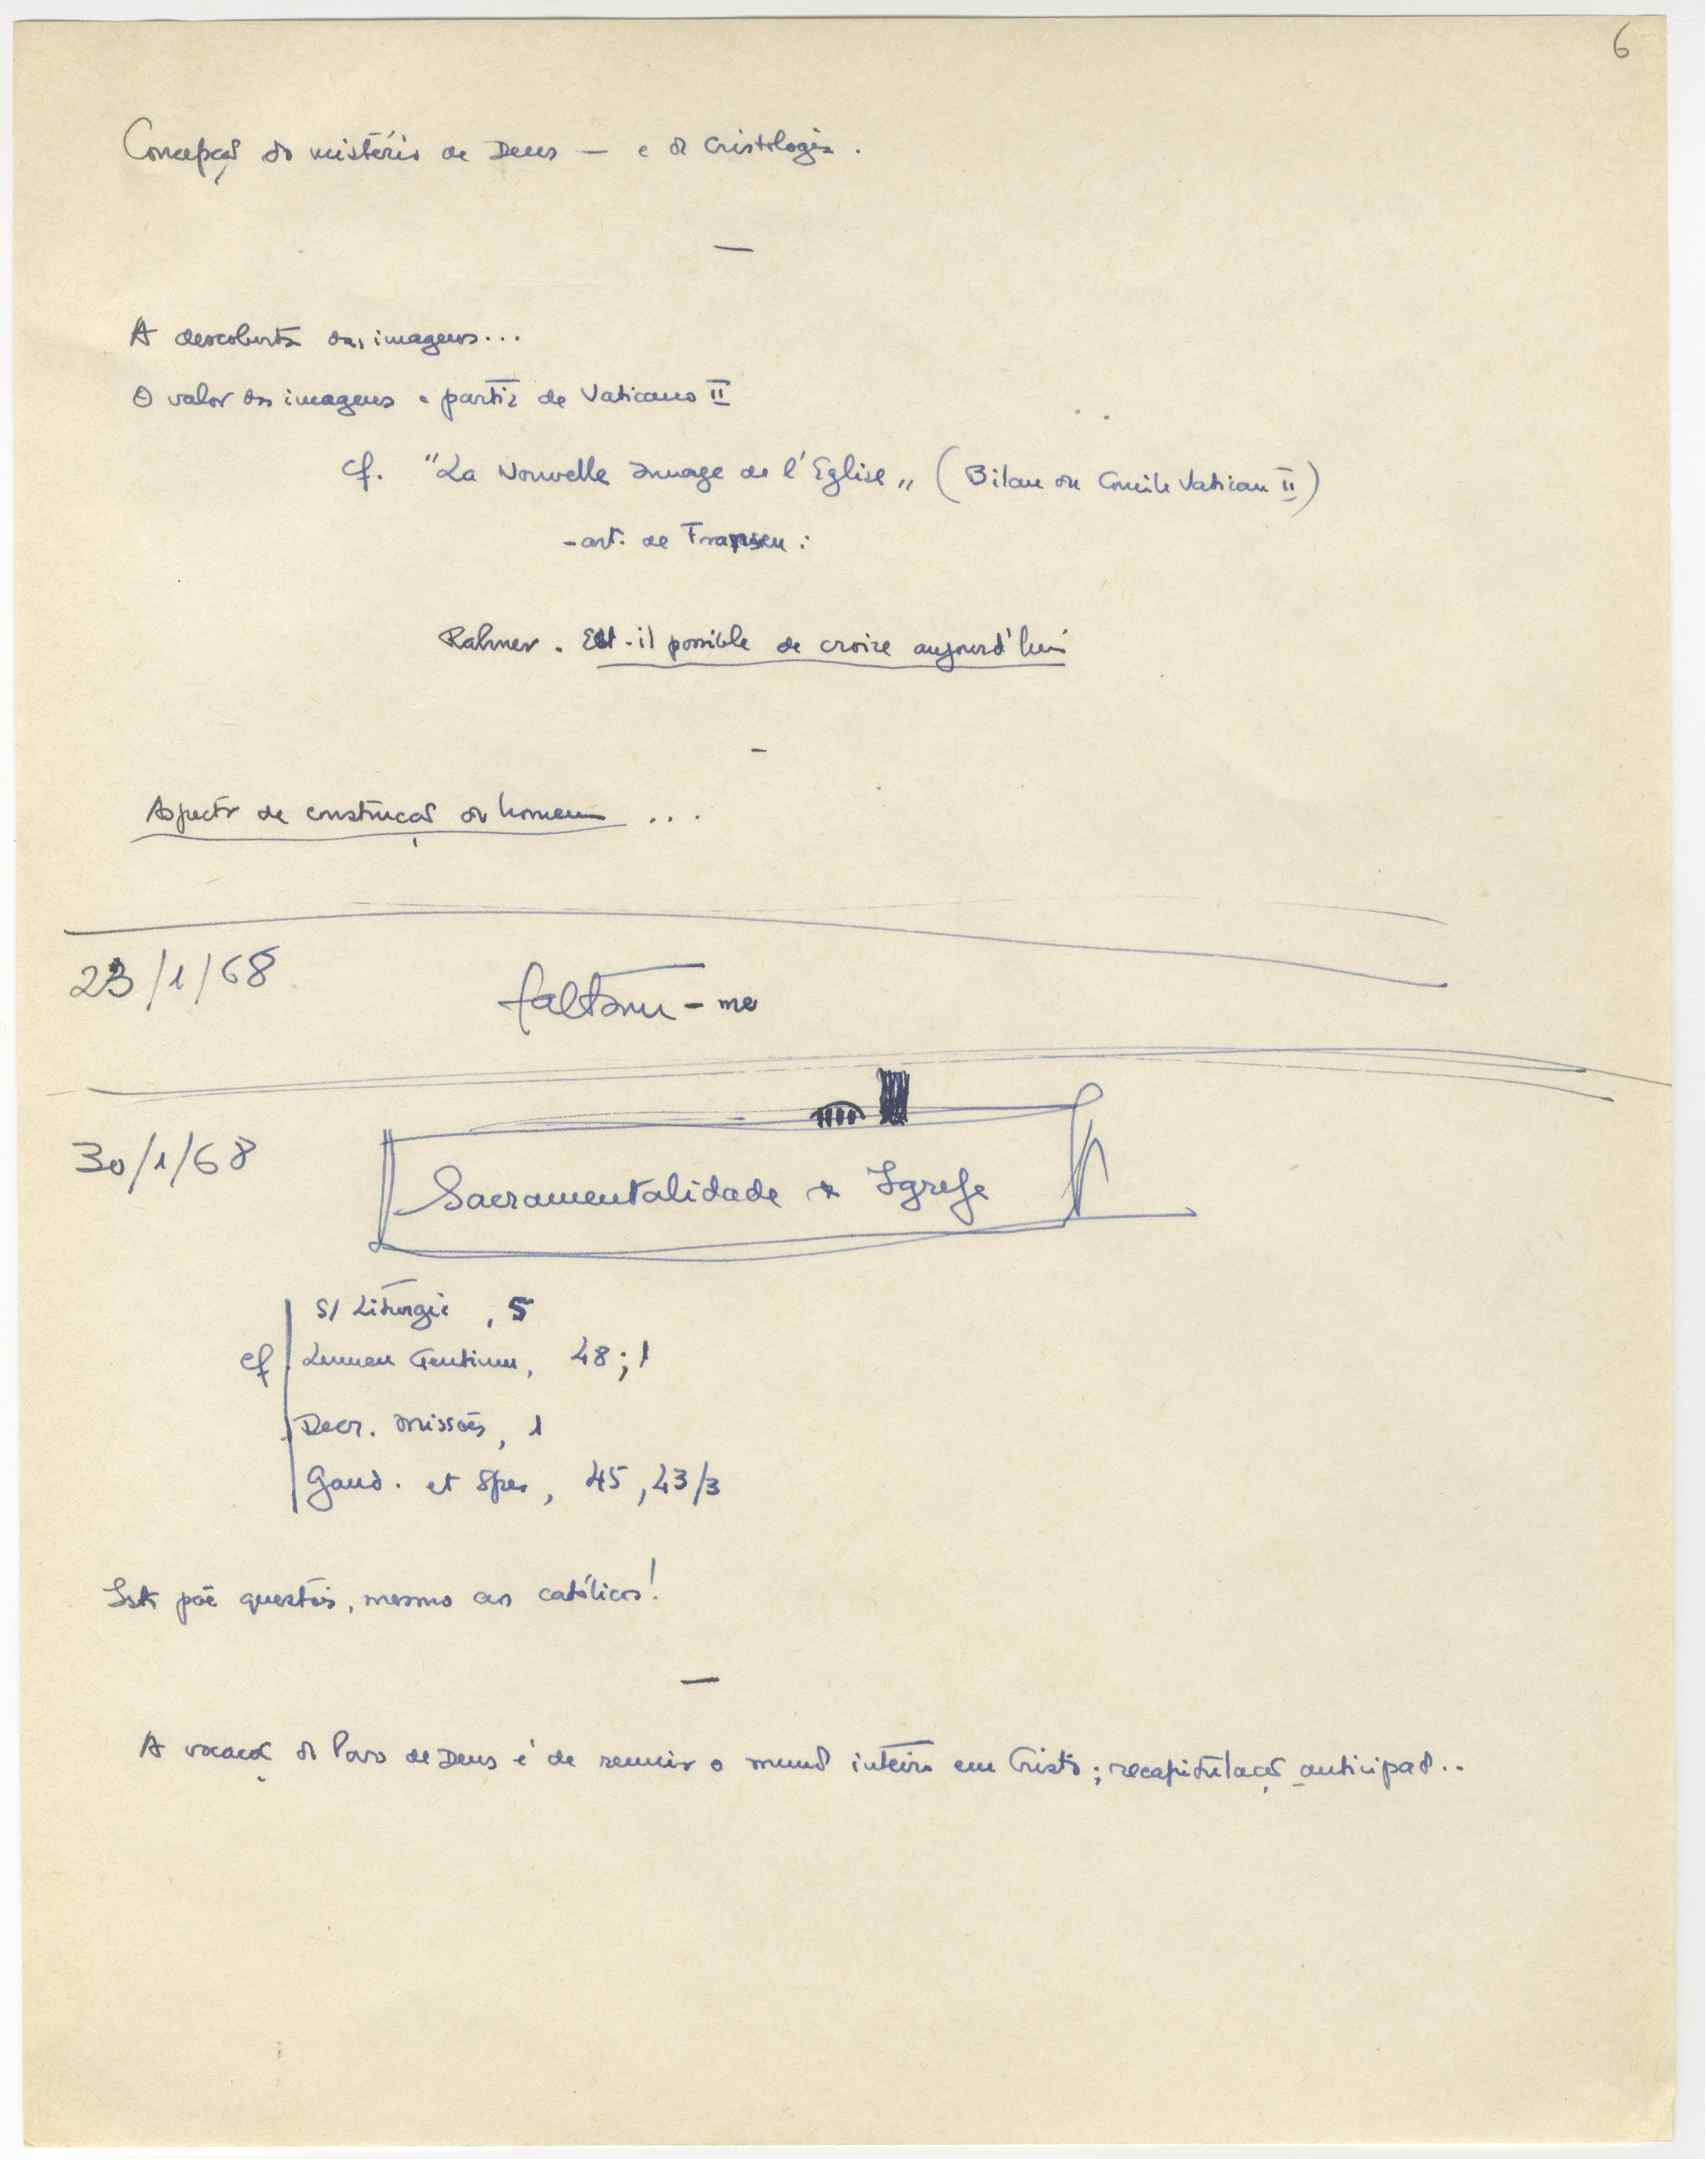 6
Concepção do mistério de Deus — e da Cristologia.
—
A descoberta das imagens...
O valor das imagens a partir de Vaticano II
Cf. "La Nouvelle Image de l'Eglise" (Bilan du Concile Vatican II)
- art. de Fransen :
Rahner. Est-il possible de croire aujourd'hui
-
Aspecto de construção do homem ...
23/1/68
faltam-me
30/1/68
Sacramentalidade da Igreja
S/ Liturgia, 5
cf Lumen Gentium, 48; 1
Decr. Missões, 1
Gaud. et Spes, 45, 43/3
Isto põe questões, mesmo aos católicos!
—
A vocação do Povo de Deus é de reunir o mundo inteiro em Cristo; recapitulação anticipada..